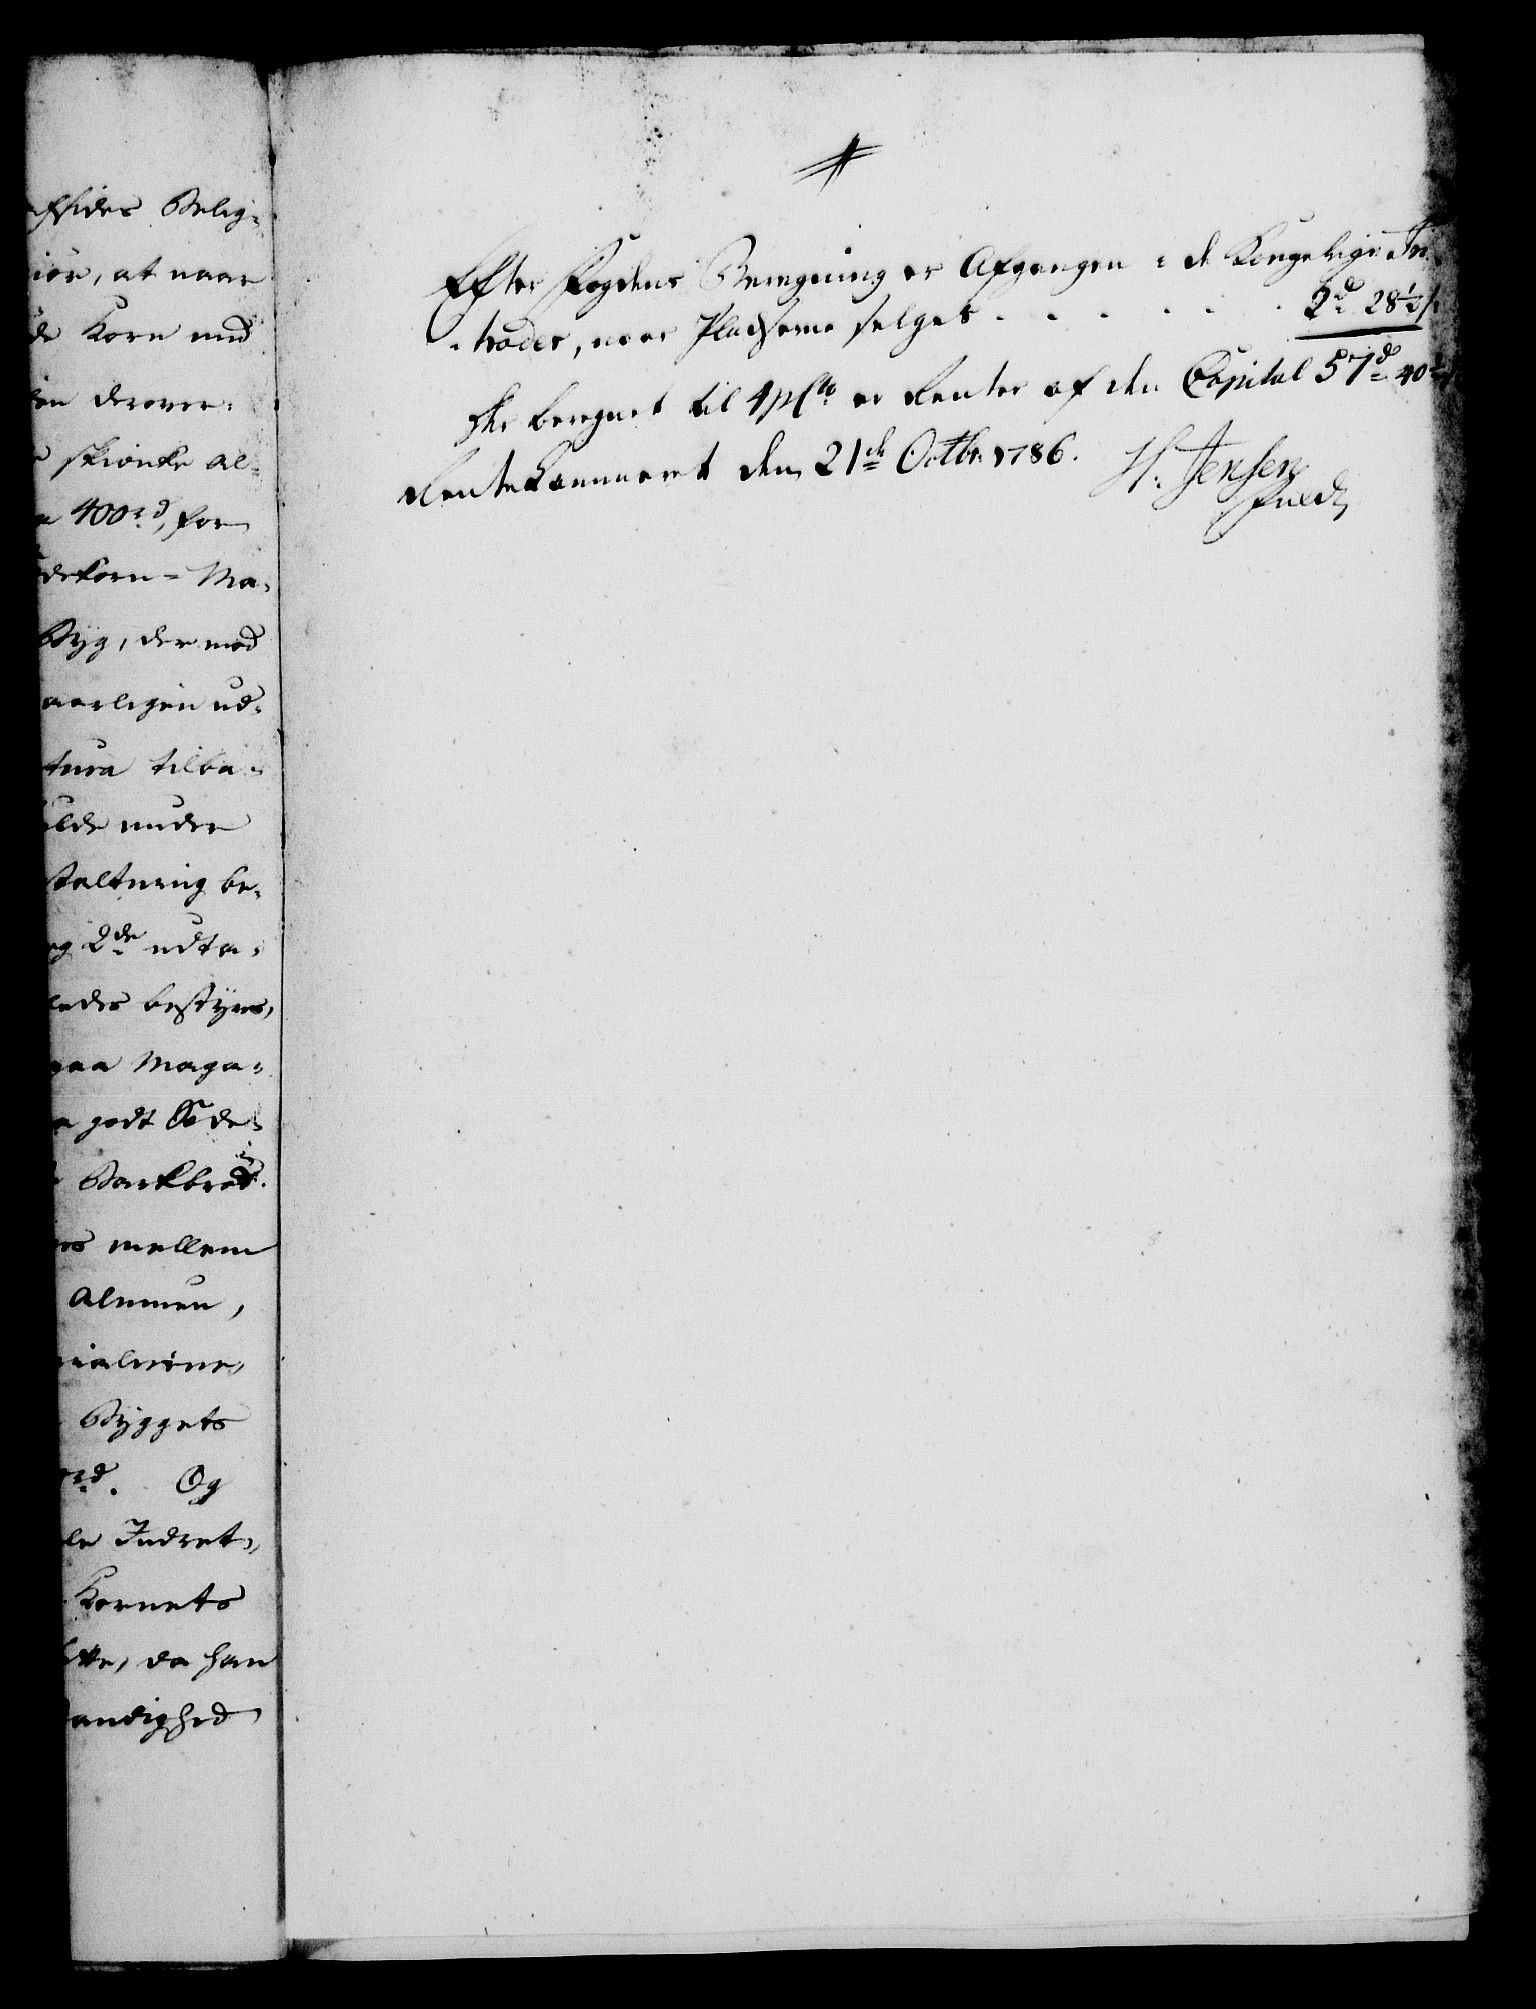 afsides Belig-
iør, at naar
de Korn med
ien derover-
skienke Al-
400rd, for
dekorn-Ma-
Byg, der mod
aarligen ud-
tura tilba-
ulde under
staltning be-
og 2de udta-
ledes bestyres,
paa Maga-
godt Sæde-
Barkbrød.
mellem
Almuen,
Byggets
rd. Og
le Indret-
Kornets
da han
andighed
Efter Fogdens Beregning er Afgangen i de Kongelige In-
-trader, naar Pladserne selges . . . . . 2d 28½ s
der beregnet til 4 pCto er Renter af den Capital 57d 40
Rentekammeret den 21de Octbr 1786. H. Jensen